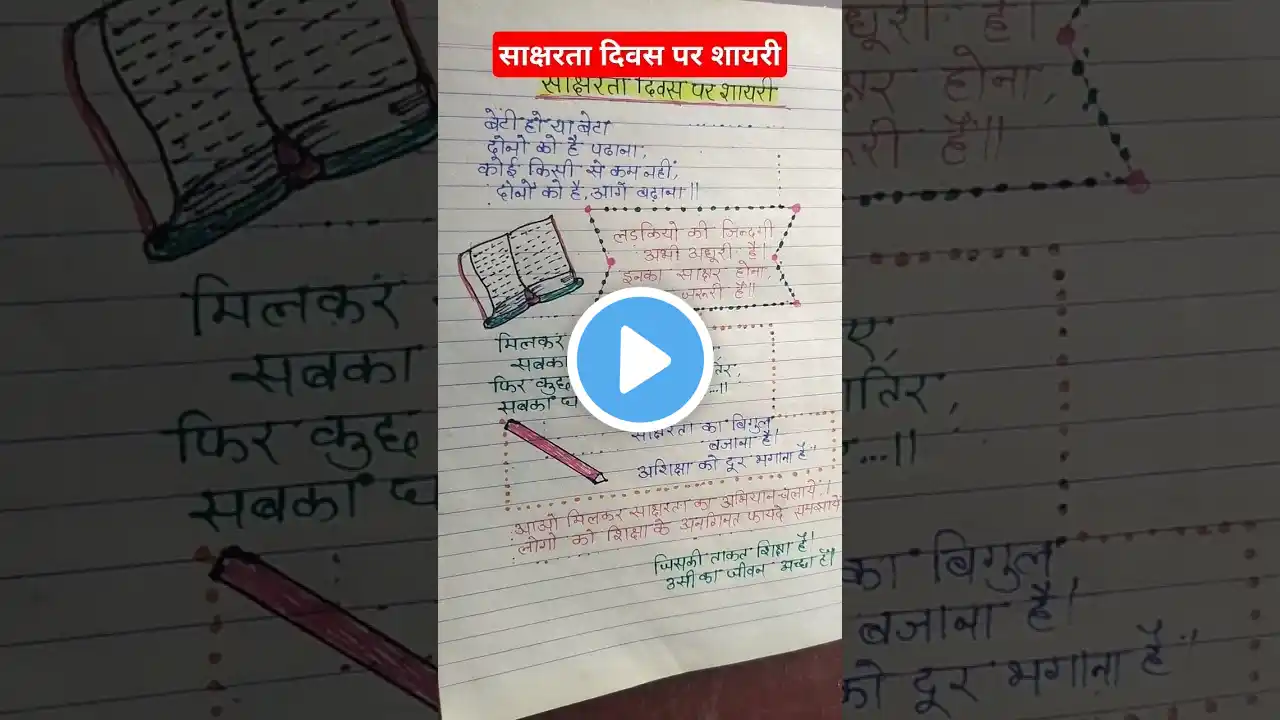 साक्षरता दिवस पर शायरी
साक्षरता दिवस पर शायरी
बेटी हो या बेटा
दोनो को है पढाना,
कोई किसी से कम नहीं,
दोनों को है, आगे बढ़ाना॥
लड़कियो की जिन्दगी
अभी अधूरी है।
इनका साक्षर होना,
जरूरी है॥
मिलकर
सबका
फिर कुछ तिर,
सबका घ ...॥
साक्षरता का बिगुल
बजाना है।
अशिक्षा को दूर भगाना है"
आओ मिलकर साक्षरता का अभियान चलाये।
लोगो को शिक्षा के अनगिनत फायदे समझाये
जिसकी ताकत शिक्षा है।
उसी का जीवन अच्छा है।